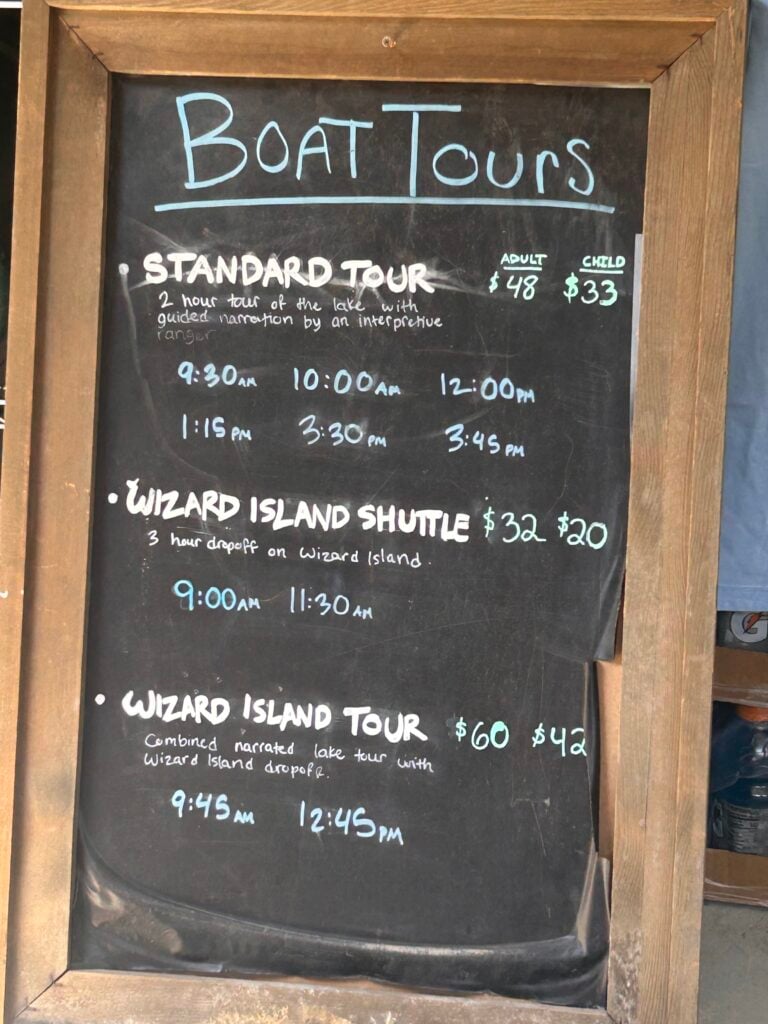 BOAT TOURS
ADULT CHILD
• STANDARD TOUR $48 $33
2 hour tour of the lake with
guided narration by an interpretive
ranger
9:30AM 10:00AM 12:00PM
1:15PM 3:30PM 3:45PM
• WIZARD ISLAND SHUTTLE $32 $20
3 hour dropoff on Wizard Island.
9:00AM 11:30AM
• WIZARD ISLAND TOUR $60 $42
Combined narrated lake tour with
Wizard Island dropoff.
9:45AM 12:45PM
G